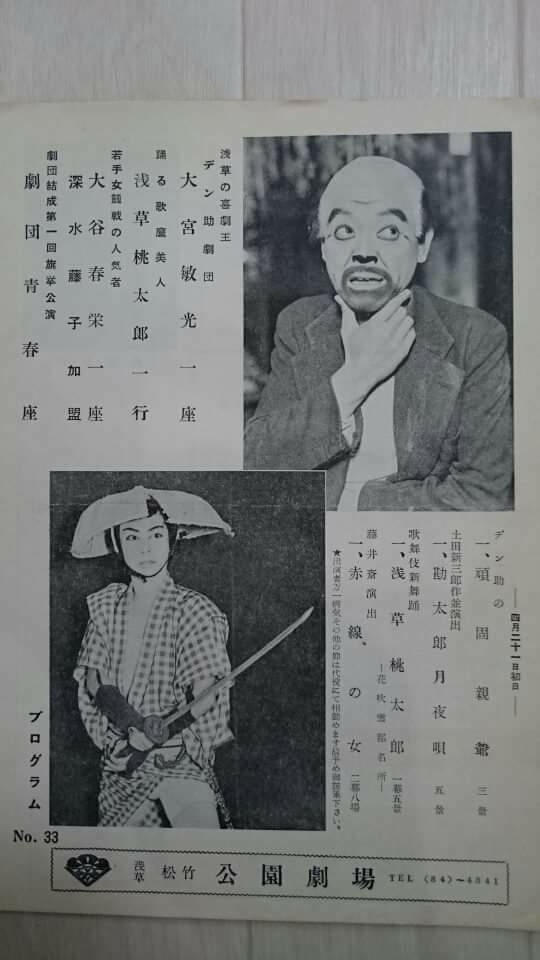 浅草の喜劇王
デン助劇団
大宮敏光一座
踊る歌麿美人
浅草桃太郎一行
若手女剣戟の人気者
大谷春栄一座
深水藤子加盟
劇団結成第一回旗挙公演
劇団青春座
―四月二十一日初日―
デン助の
一、頑固親爺 三景
土田新三郎作並演出
一、勘太郎月夜唄 五景
歌舞伎新舞踊
一、浅草桃太郎 一幕五景
―花吹雪都名所―
藤井斎演出
一、赤線の女 二幕八場
★出演者万一病気その他の節は代役にて相勤めます故予め御諒承下さい。
プログラム
No. 33
浅草 松竹 公園劇場 TEL (84)～4841